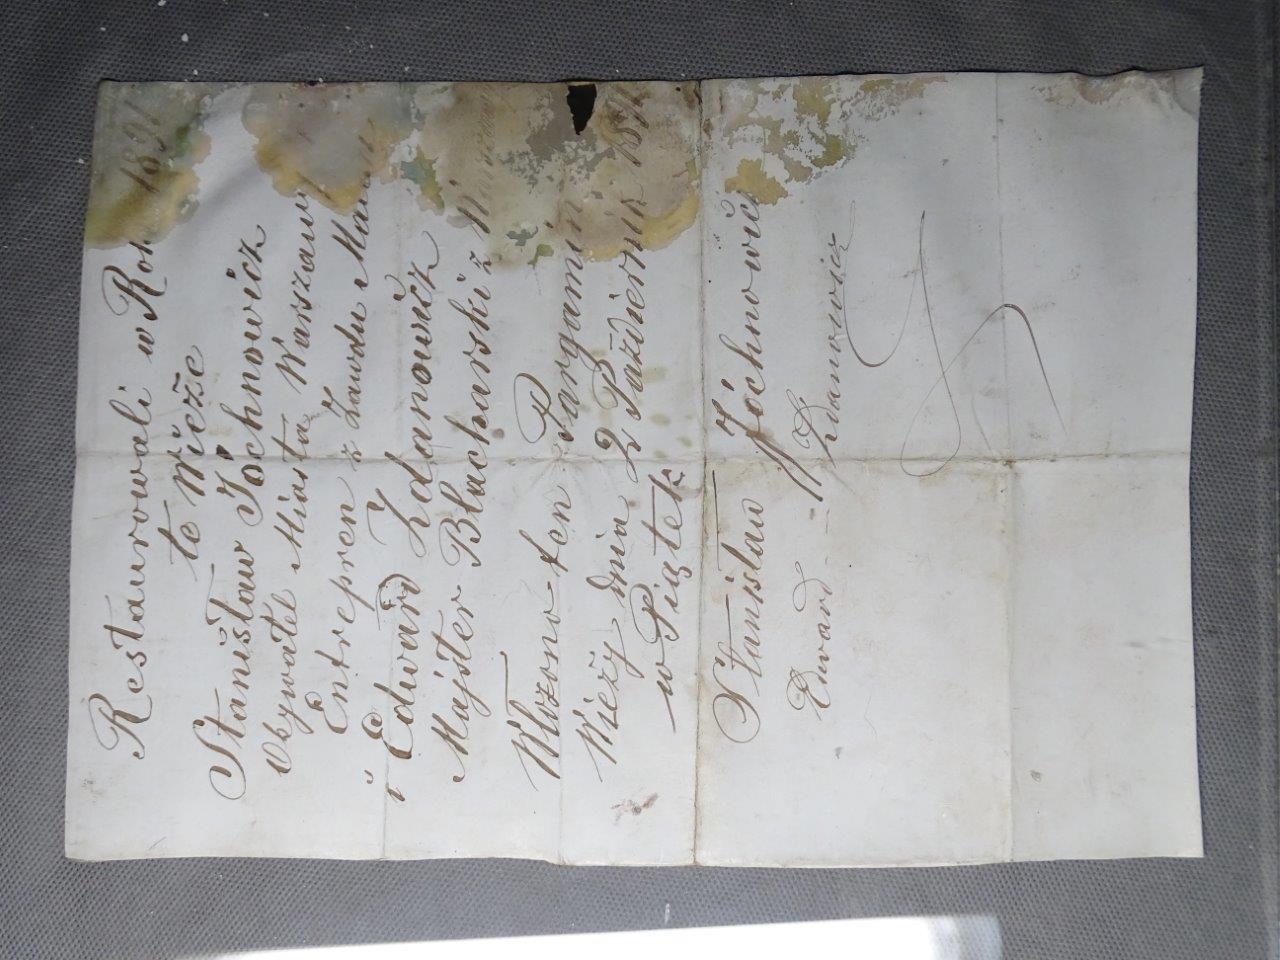 Restaurowali w Roku 1891
te wieże
Stanisław Jóchnowicz
Obywatel Miasta Warszawy
Entrepren z Zawodu
i Edward Zdanowicz
Majster Blacharski z
Włozono ten Pargamin
Wieży dnia 2 Październik 1891
w Piątek
Stanisław Jóchnowicz
Edward Zdanowicz